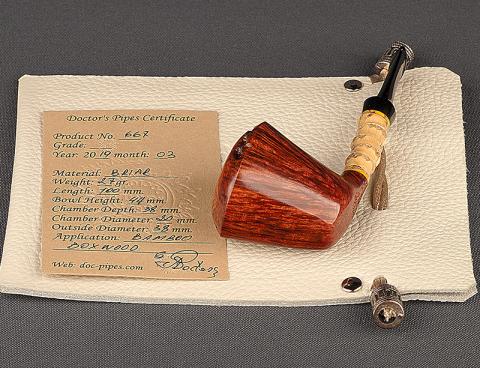 Doctor's Pipes Certificate
Product No. 667
Grade:
Year: 2019 month: 03
Material: BRIAR
Weight: 27 gr.
Length: 100 mm.
Bowl Height: 44 mm
Chamber Depth: 38 mm.
Chamber Diameter: 20 mm.
Outside Diameter: 38 mm.
Application: BAMBOO
BOXWOOD
Web: doc-pipes.com